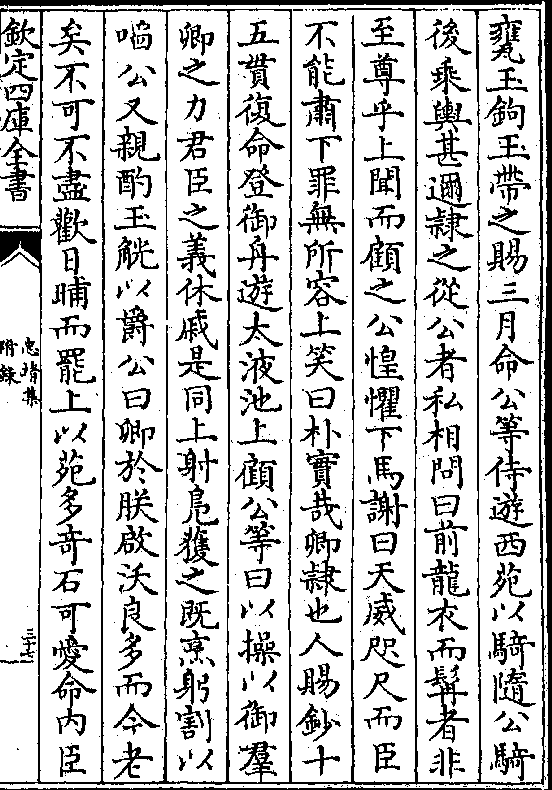 甕玉鉤玉帶之賜三月命公等侍遊西苑以騎隨公騎
後乘輿甚邇隷之從公者私相問曰前龍衣而髯者非
至尊乎上聞而顧之公惶懼下馬謝曰天威咫尺而臣
不能肅下罪無所容上笑曰朴實哉卿隷也人賜鈔十
五貫復命登御舟遊太液池上顧公等曰以操以御羣
卿之力君臣之義休戚是同上射鳬獲之既烹躬割以
㗖公又親酌玉觥以爵公曰卿於朕啟沃良多而今老
矣不可不盡歡日晡而罷上以苑多奇石可愛命内臣
欽定四庫全書
忠靖集
附錄
三十七